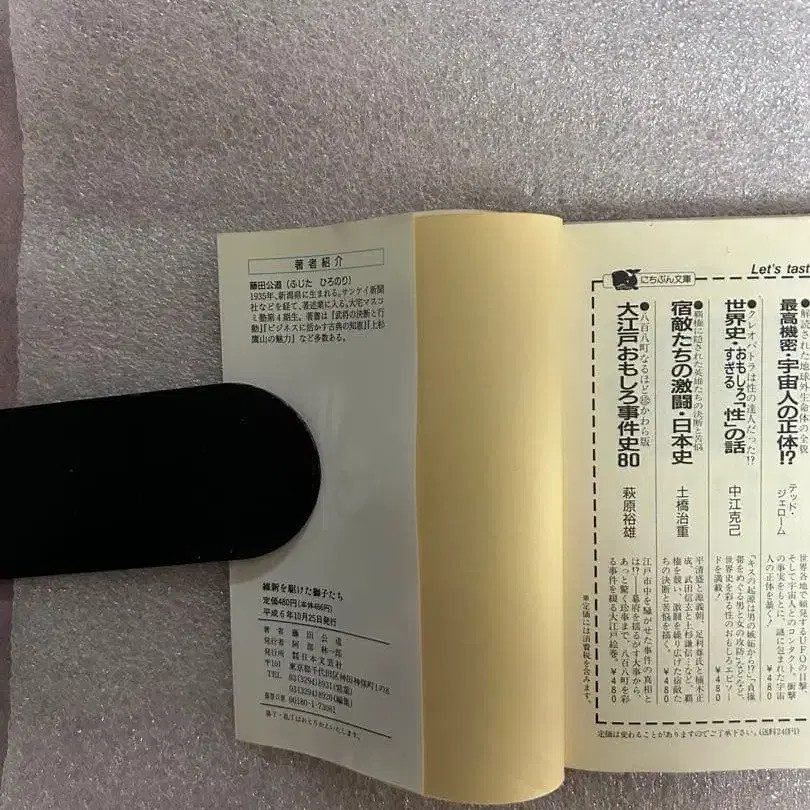 著者紹介
藤田公道（ふじた　ひろのり）
1935年、新潟県に生まれる。サンケイ新聞
社などを経て、著述業に入る。大宅マスコ
ミ塾第4期生。著書は『武将の決断と行
動』『ビジネスに活かす古典の知恵』『上杉
鷹山の魅力』など多数ある。
維新を駆けた獅子たち
定価480円(本体466円)
平成6年10月25日発行
著者 藤田公道
発行者 阿部林一郎
発行所 株式会社日本文芸社
〒101 東京都千代田区神田神保町1の8
TEL 03(3294)8931(営業)
03(3294)8920(編集)
振替口座 00180-1-73081
落丁・乱丁はおとりかえいたします。
にちぶん文庫
Let's tast
●解読された地球外生命体の全貌
最高機密・宇宙人の正体!?
テッド・ジェローム
世界各地で頻発するUFOの目撃
そして宇宙人とのコンタクト、衝撃
の事実をもとに、謎に包まれた宇宙
人の正体を暴く！
￥480
●クレオパトラは性の達人だった!?
世界史・おもしろすぎる「性」の話
中江克己
「キスの起源は男の嫉妬から!?」「貞操
帯をめぐる男と女の攻防」などなど、
世界史を彩る性のおもしろエピソー
ドを満載！
￥480
●覇権に隠された英雄たちの決断と苦悩
宿敵たちの激闘・日本史
土橋治重
平清盛と源義朝、足利尊氏と楠木正
成、武田信玄と上杉謙信…など、覇
権を競い、激闘を繰り広げた宿敵た
ちの決断と苦悩を描く。
￥480
●八百八町なるほど㊙かわら版
大江戸おもしろ事件史80
萩原裕雄
江戸市中を騒がせた事件の真相と
は!?――幕府を揺るがす大事から、
あっと驚く珍事まで、八百八町を彩
る事件を綴る大江戸絵巻。
￥480
※定価には消費税を含みます。
定価は変わることがありますのでご了承下さい。(送料240円)